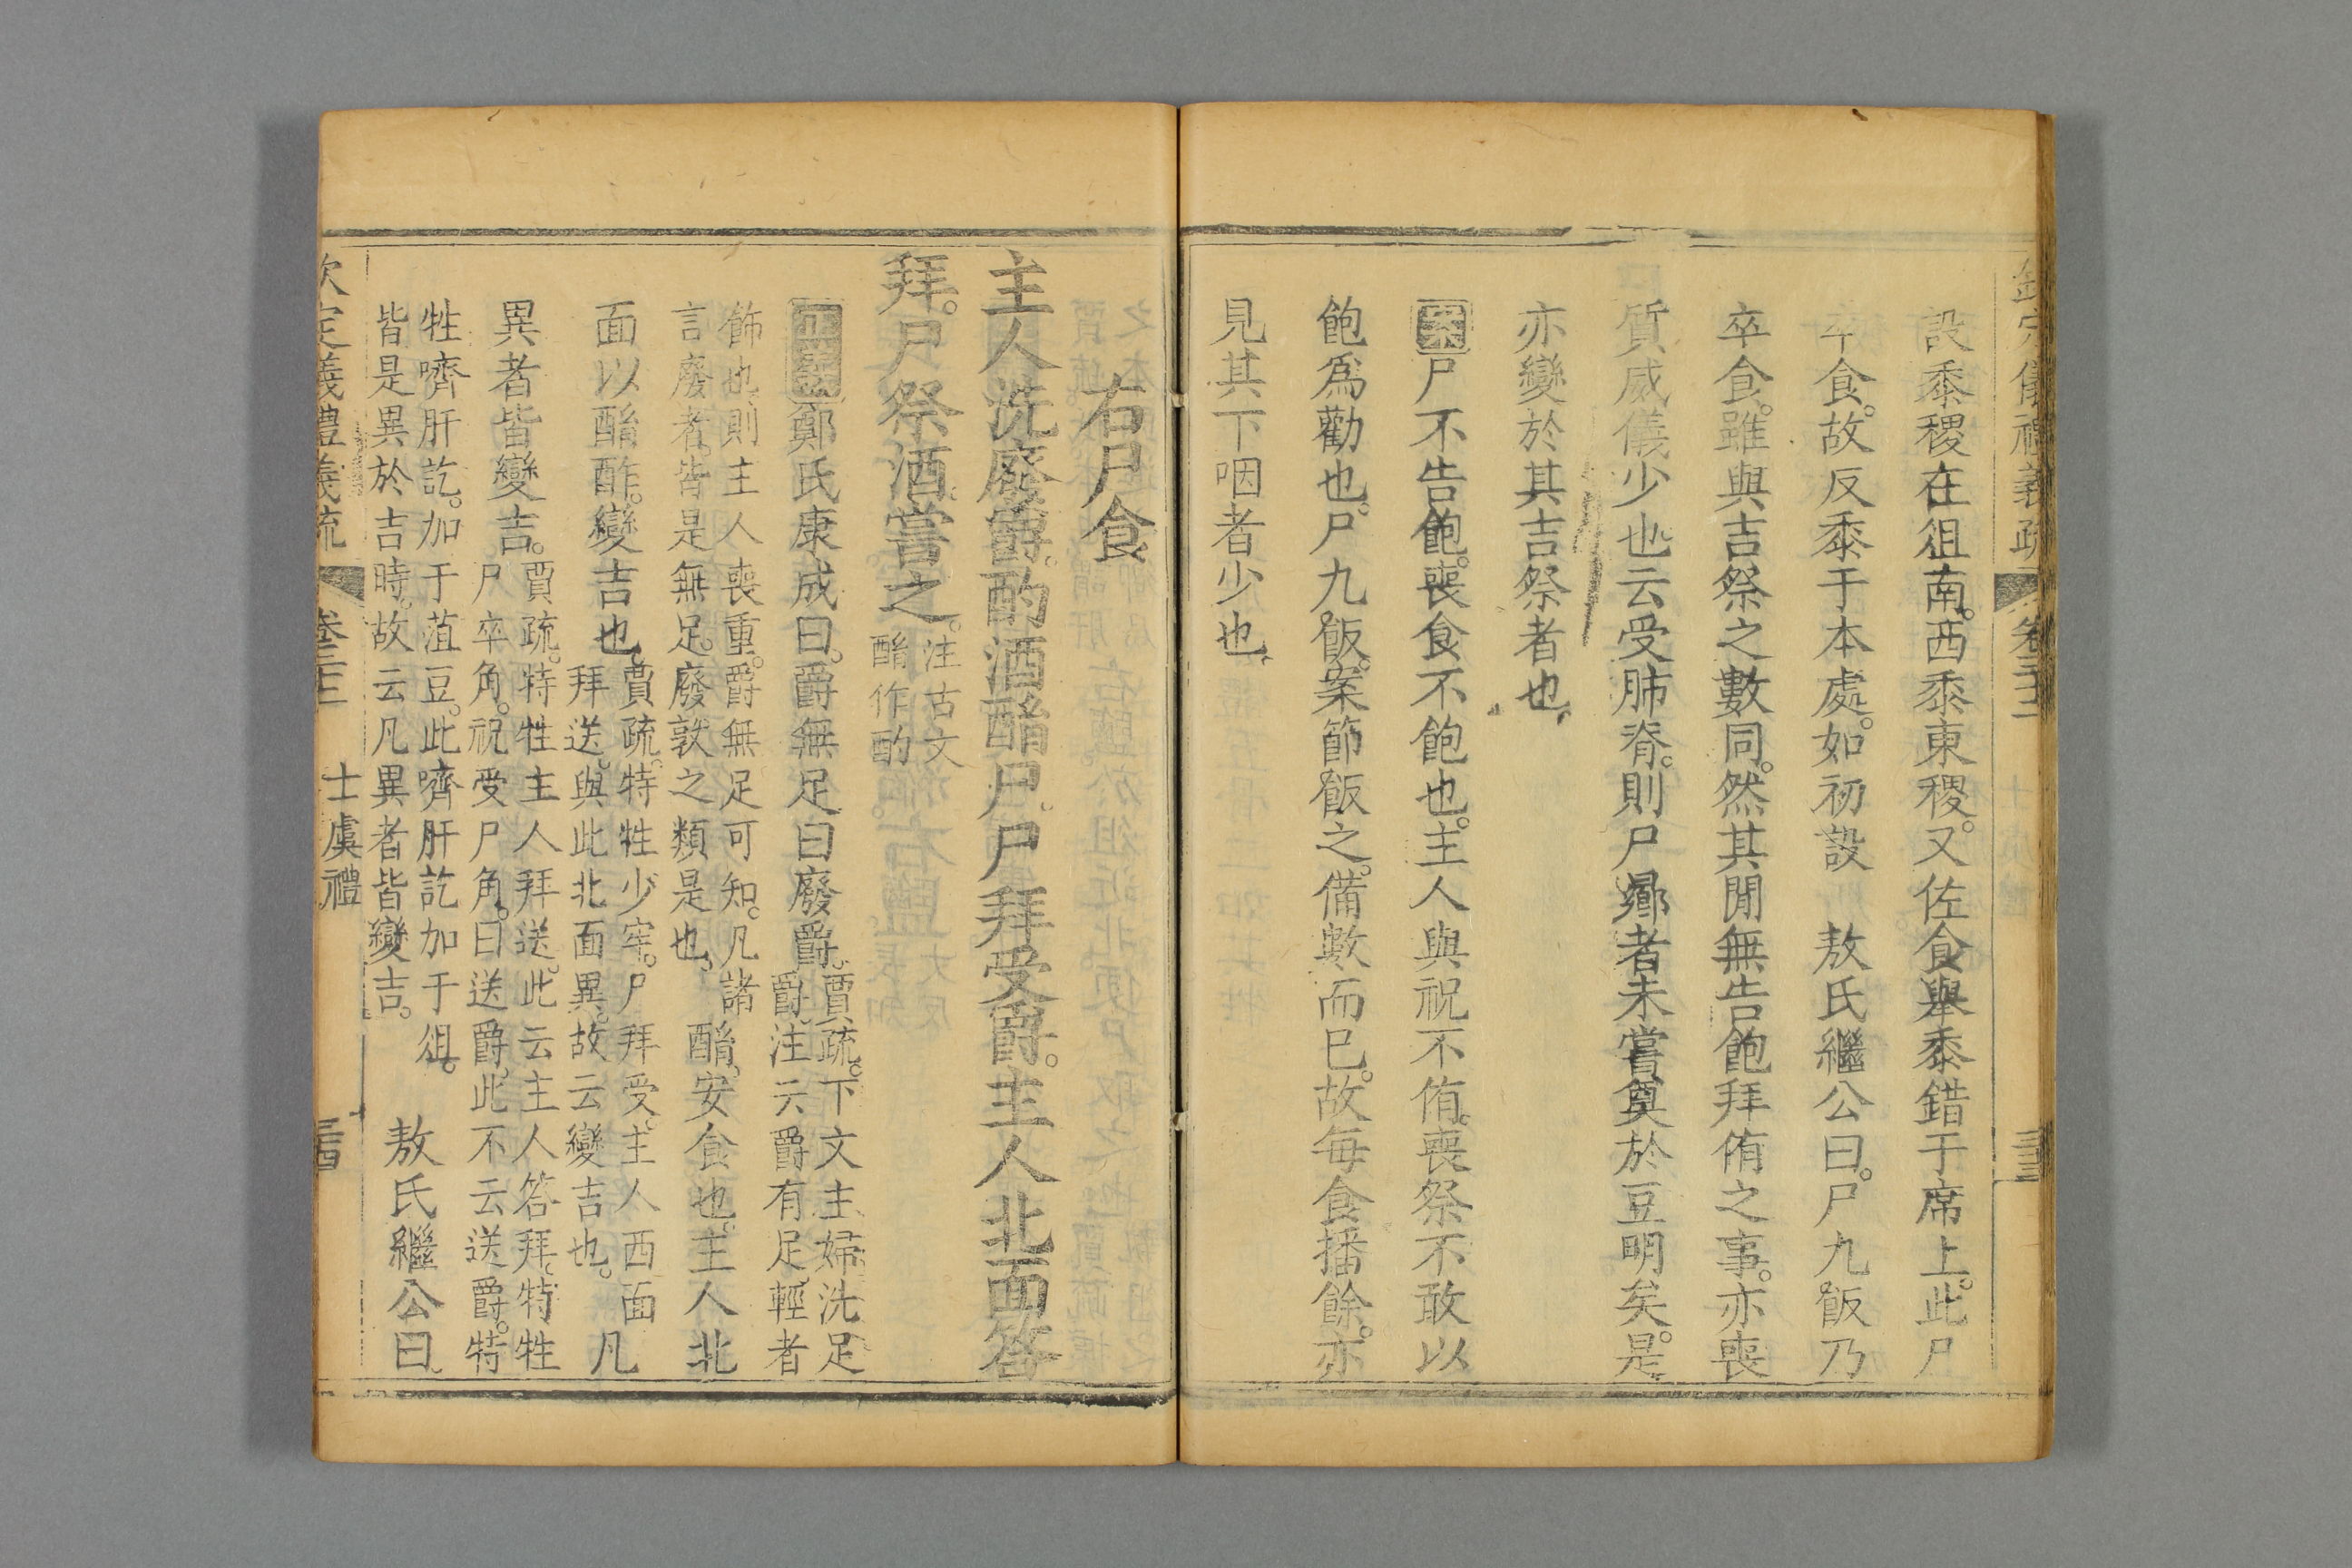 欽定儀禮義疏　卷三十三　三十三
設黍稷在俎南。西黍東稷。又佐食舉黍錯于席上。此尸
卒食。故反黍于本處。如初設　敖氏繼公曰。尸九飯乃
卒食。雖與吉祭之數同。然其閒無告飽拜侑之事。亦喪
質威儀少也。云受肺脊。則尸曏者未嘗奠於豆明矣。是
亦變於其吉祭者也。
案尸不告飽。喪食不飽也。主人與祝不侑。喪祭不敢以
飽爲勸也。尸九飯。案節飯之。備數而已。故每食播餘。亦
見其下咽者少也。
右尸食
主人洗廢爵。酌酒酳尸。尸拜受爵。主人北面答
拜。尸祭酒。嘗之。注古文
酳作酌
正義鄭氏康成曰。爵無足曰廢爵。賈疏。下文主婦洗足
爵。注云爵有足。輕者
飾也。則主人喪重。爵無足可知。凡諸
言廢者。皆是無足。廢敦之類是也。酳。安食也。主人北
面以酳酢。變吉也。賈疏。特牲少牢。尸拜受。主人西面
拜送。與此北面異。故云變吉也。凡
異者皆變吉。賈疏。特牲主人拜送。此云主人答拜。特牲
尸卒角。祝受尸角。曰送爵。此不云送爵。特
牲嚌肝訖。加于菹豆。此嚌肝訖加于俎。
皆是異於吉時。故云凡異者皆變吉。敖氏繼公曰。
欽定儀禮義疏　卷三十三　士虞禮　三十四